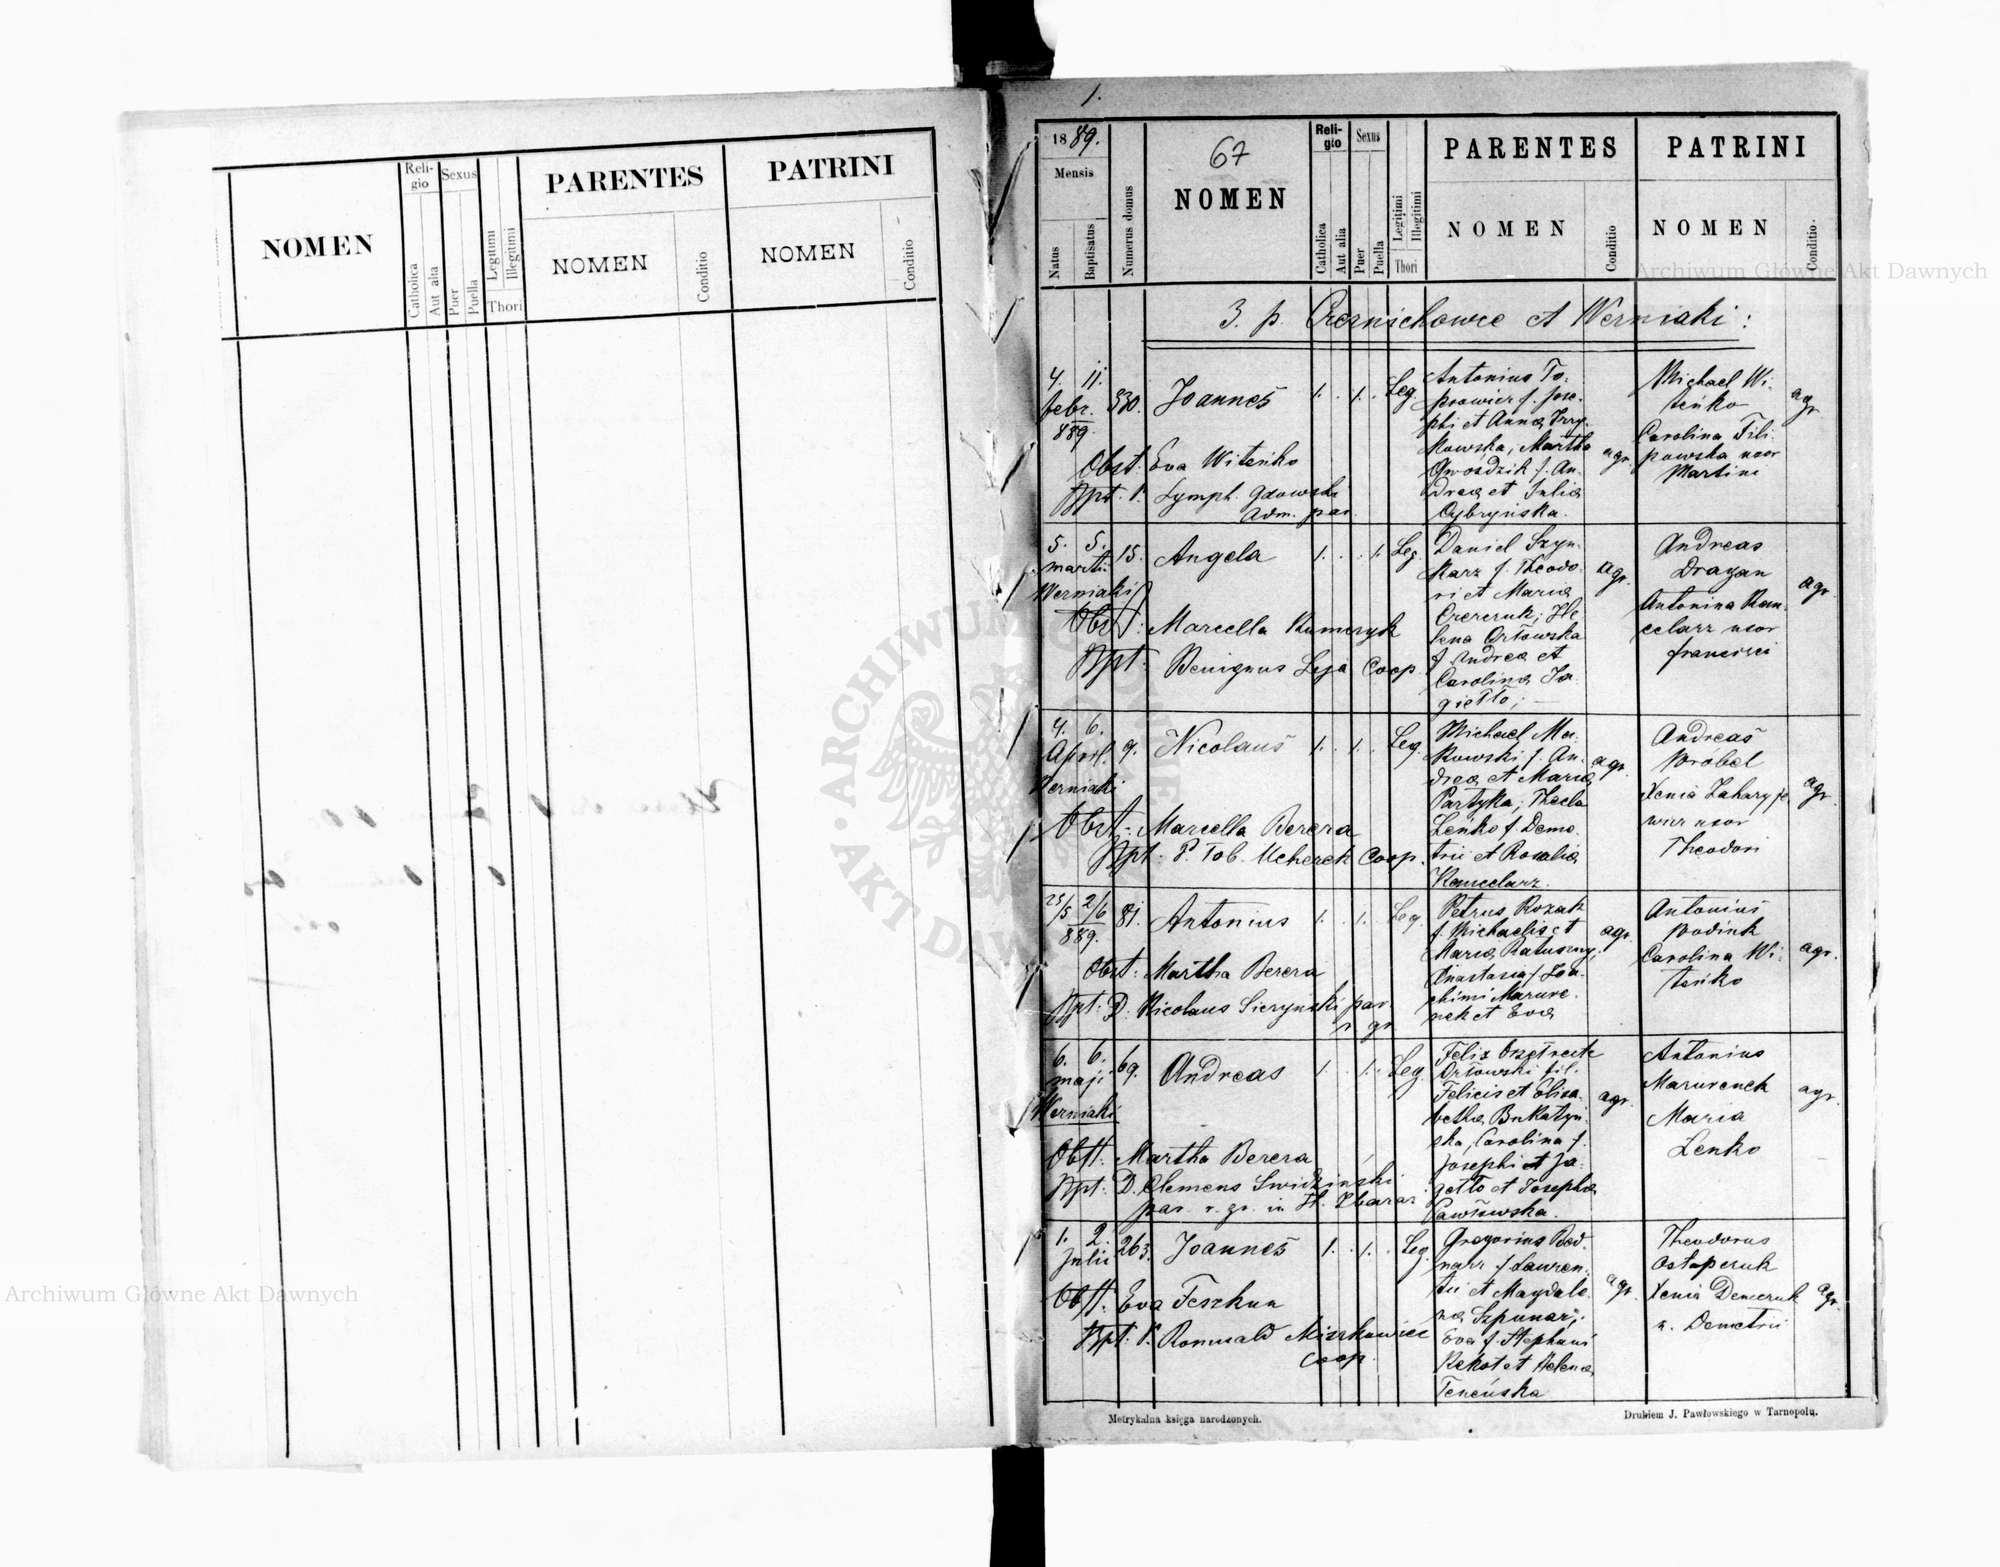 NOMEN
Reli-
gio
Catholica
Aut alia
Sexus
Puer
Puella
Legitimi
Illegitimi
Thori
PARENTES
NOMEN
Conditio
PATRINI
NOMEN
Conditio
1.
1889.
Mensis
Natus
Baptisatus
Numerus domus
67
NOMEN
Reli-
gio
Catholica
Aut alia
Sexus
Puer
Puella
Legitimi
Illegitimi
Thori
PARENTES
NOMEN
Conditio
PATRINI
NOMEN
Conditio.
3. p. Czernichowce et Werniaki:
4. 11.
febr.
889.
530.
Joannes
1. . 1. . Leg.
Obst: Eva Witeńko
Bpt. P. Lymph. Gdowski
Adm. par.
Antonius To-
porowicz f. Jose-
phi et Anna
Martha
Gwoździk f. An-
drea et Julia
Cybryńska.
agr.
Michael Wi-
teńko
Carolina Fili-
powska uxor
Martini
agr.
5. 5.
martii
Werniaki
15.
Angela
1. . . 1. Leg.
Obst: Marcella Kumeryk
Bpt. Benignus Leja Coop.
Daniel Szyn-
karz f. Theodo-
ri et Maria
Czerczuk; He-
lena Orłowska
f. Andrea et
Carolina Ja-
giełło;
agr.
Andreas
Dragan
Antonina Kan-
celarz uxor
Francisci
agr.
4. 6.
April.
Werniaki
9.
Nicolaus
1. . 1. . Leg.
Obst: Marcella Berera
Bpt: P. Tob. Ucherek Coop.
Michael Ma-
kowski f. An-
drea et Maria
Partyka; Thecla
Leńko f. Deme-
trii et Rosalia
Kancelarz.
agr.
Andreas
Wróbel
Xenia Zaharyje-
wicz uxor
Theodori
agr.
25/5 2/6
889.
81.
Antonius
1. . 1. . Leg.
Obst: Martha Berera
Bpt: D. Nicolaus Sieryński par.
r. gr.
Petrus Kozak
f. Michaelis et
Maria Ratuszny;
Anastasia f. Joa-
chimi Mazure-
nek et Eva
agr.
Antonius
Wodink
Carolina Wi-
teńko
agr.
6. 6.
maji
Werniaki
69.
Andreas
1. . 1. . Leg.
Obst: Martha Berera
Bpt: D. Clemens Swidziński
par. r. gr. in St. Zbaraz
Felix
Orłowski fil.
Felicis et Elisa-
betha Bukatyń-
ska, Carolina f.
Josephi et Ja-
giełło et Josepha
Pawłowska.
agr.
Antonius
Mazurenek
Maria
Lenko
agr.
1. 2.
Julii
263.
Joannes
1. . 1. . Leg.
Obst. Eva Feszkun
Bpt: P. Romuald Miszkowicz
Coop.
Gregorius Bed-
narz f. Lauren-
tii et Magdale-
na Szpunar;
Eva f. Stephani
Rekot et Helena
Teneńska
agr.
Theodorus
Ostapczuk
Xenia Demczuk
u. Demetrii
agr.
Metrykalna księga narodzonych.
Drukiem J. Pawłowskiego w Tarnopolu.
Archiwum Główne Akt Dawnych
Archiwum Główne Akt Dawnych
ARCHIWUM GŁÓWNE
AKT DAWNYCH